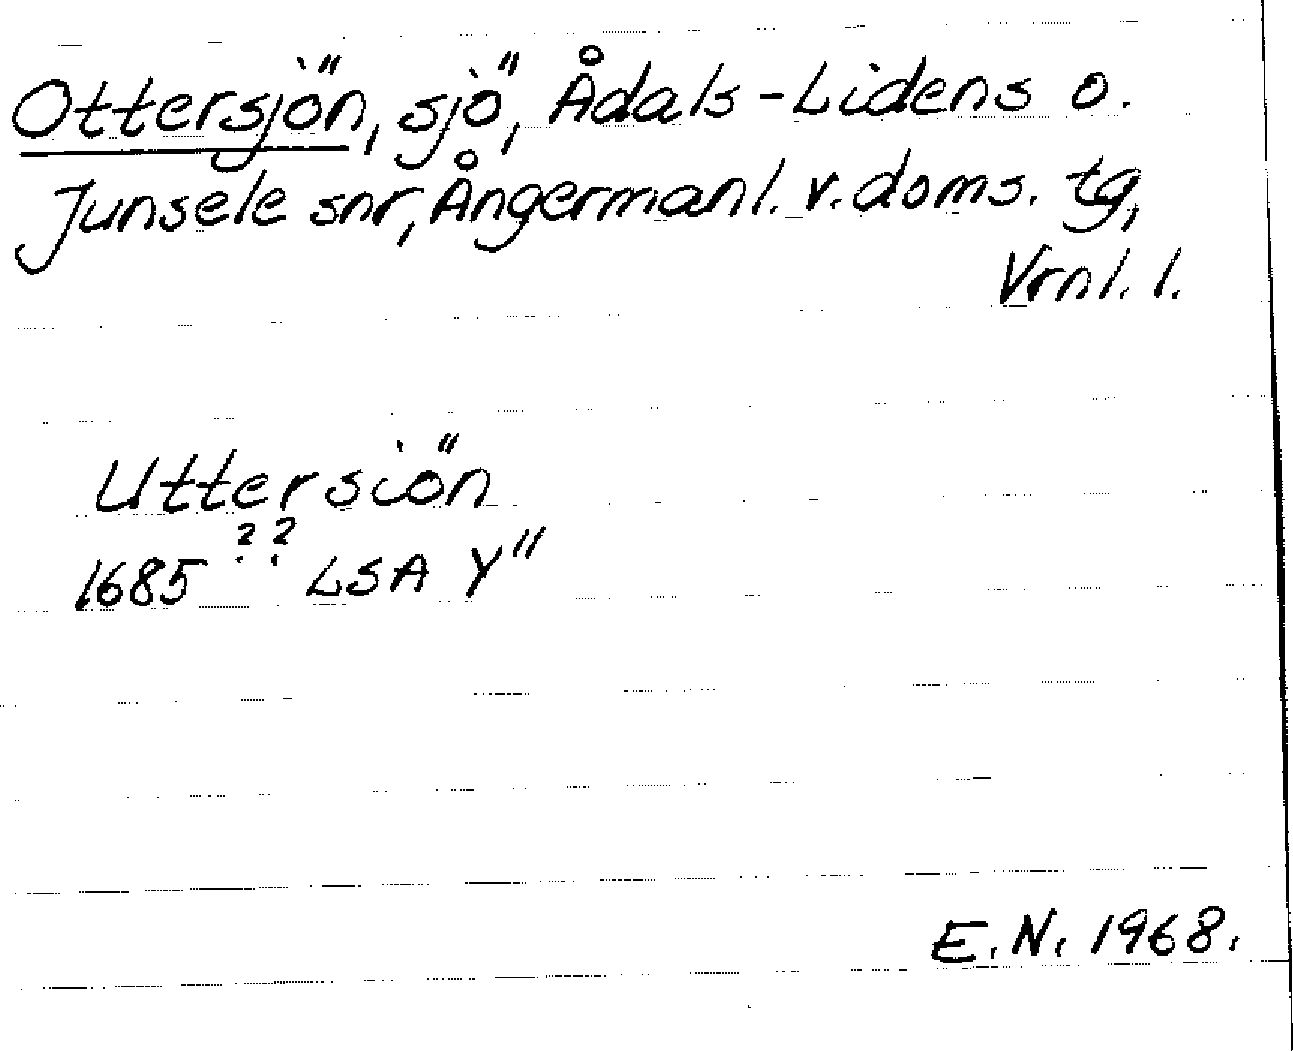 Ottersjön, sjö, Ådals-Lidens o.
Junsele snr, Ångermanl. v. doms. tg,
Vrnl. l.
Uttersiön
1685 ?? LSA Y"
E.N. 1968.